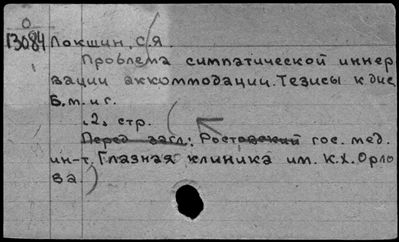 О
13084 Локшин, С.Я.
Проблема симпатической иннер
вации аккоммодации. Тезисы к дис
Б.м. и г.
,2, стр.
(Перед загл: Ростовский гос. мед.
ин-т. Глазная клиника им. К.Х. Орло
ва.)